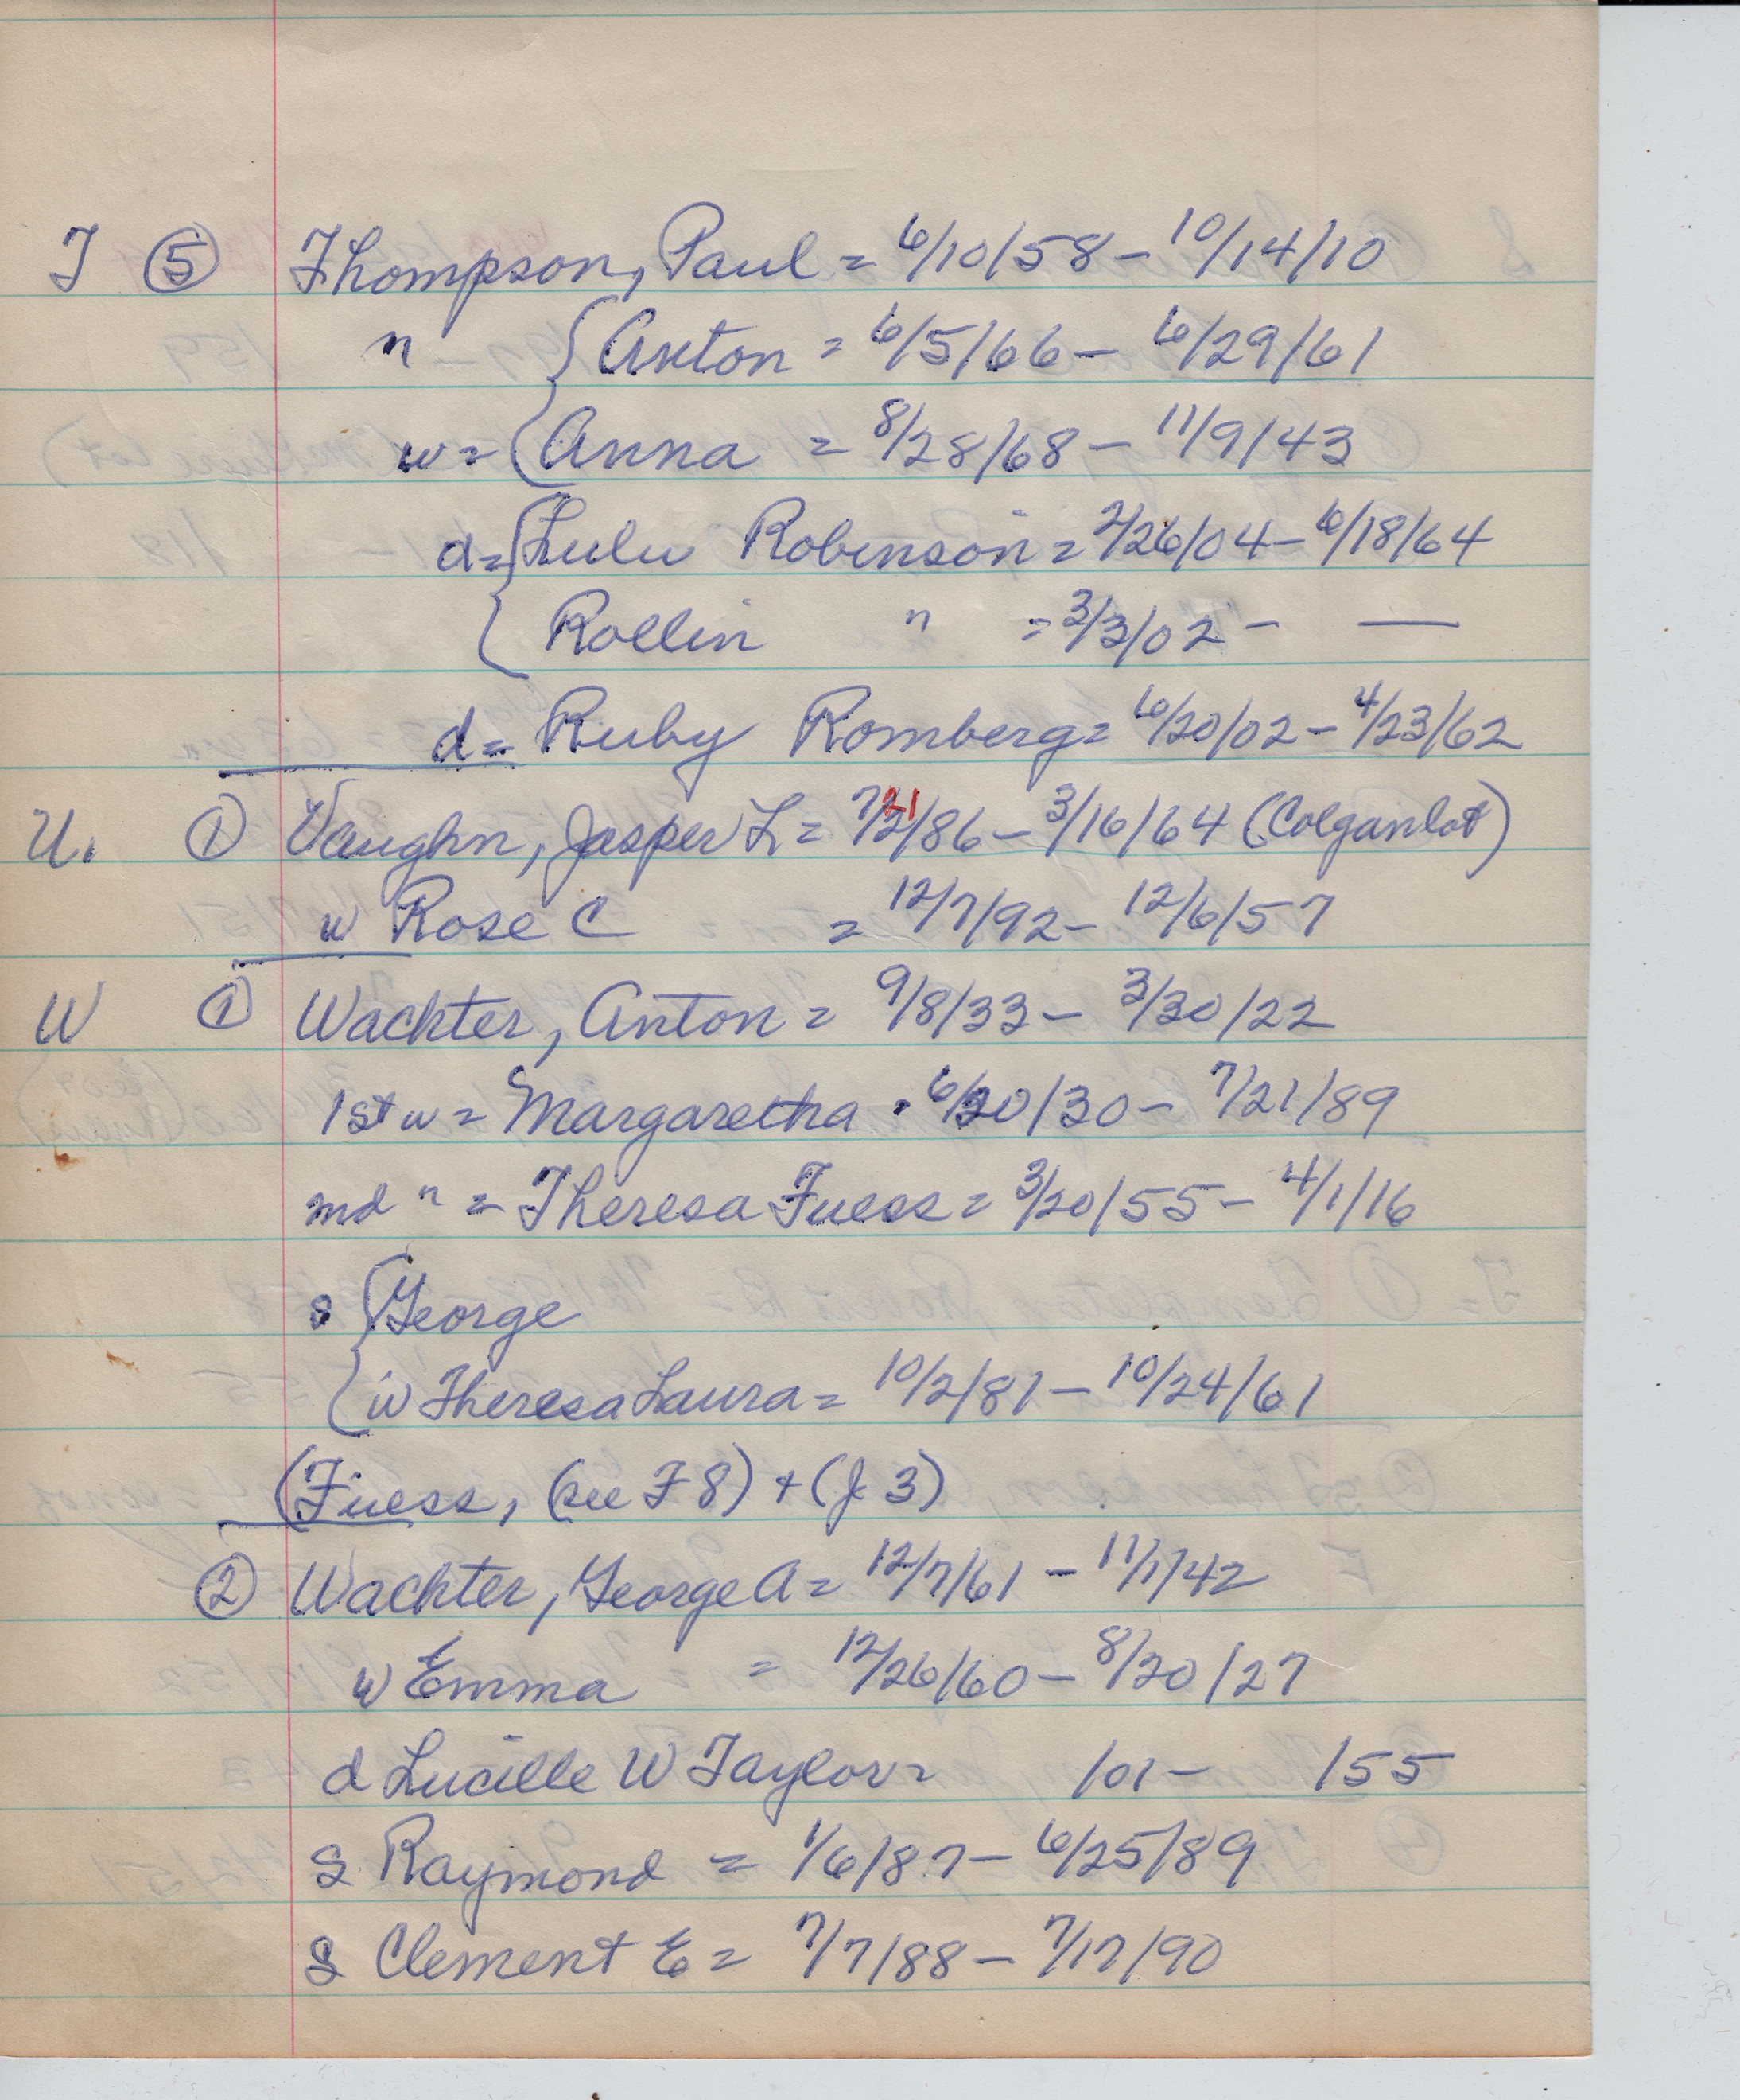 T ⑤ Thompson, Paul = 6/10/58 - 10/14/10
" { Anton = 6/5/66 - 6/29/61
w = { Anna = 8/28/68 - 11/9/43
d = { Lulu Robinson = 2/26/04 - 6/18/64
{ Rollin " = 3/3/02 - —
d = Ruby Romberg = 6/20/02 - 4/23/62
U. ① Vaughn, Jasper L = 7/21/86 - 3/16/64 (Colgan lot)
w Rose C = 12/7/92 - 12/6/57
W ① Wachter, Anton = 9/8/33 - 3/30/22
1st w = Margaretha = 6/20/30 - 7/21/89
2nd " = Theresa Fuess = 3/20/55 - 4/1/16
s { George
{ w Theresa Laura = 10/2/81 - 10/24/61
(Fuess, (see F 8) + (J 3)
② Wachter, George A = 12/7/61 - 11/1/42
w Emma = 12/26/60 - 8/20/27
d Lucille W Taylor = /01 - /55
s Raymond = 1/6/87 - 6/25/89
s Clement E = 7/7/88 - 7/17/90